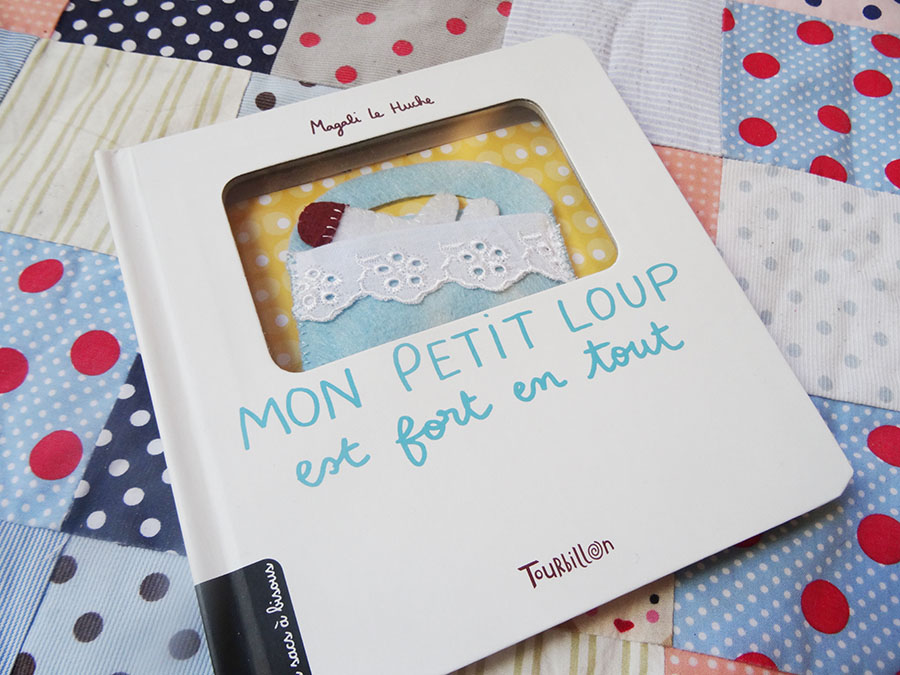 Magali le Huche
MON PETIT LOUP
est fort en tout
TOURBILLON
sacs à bisous